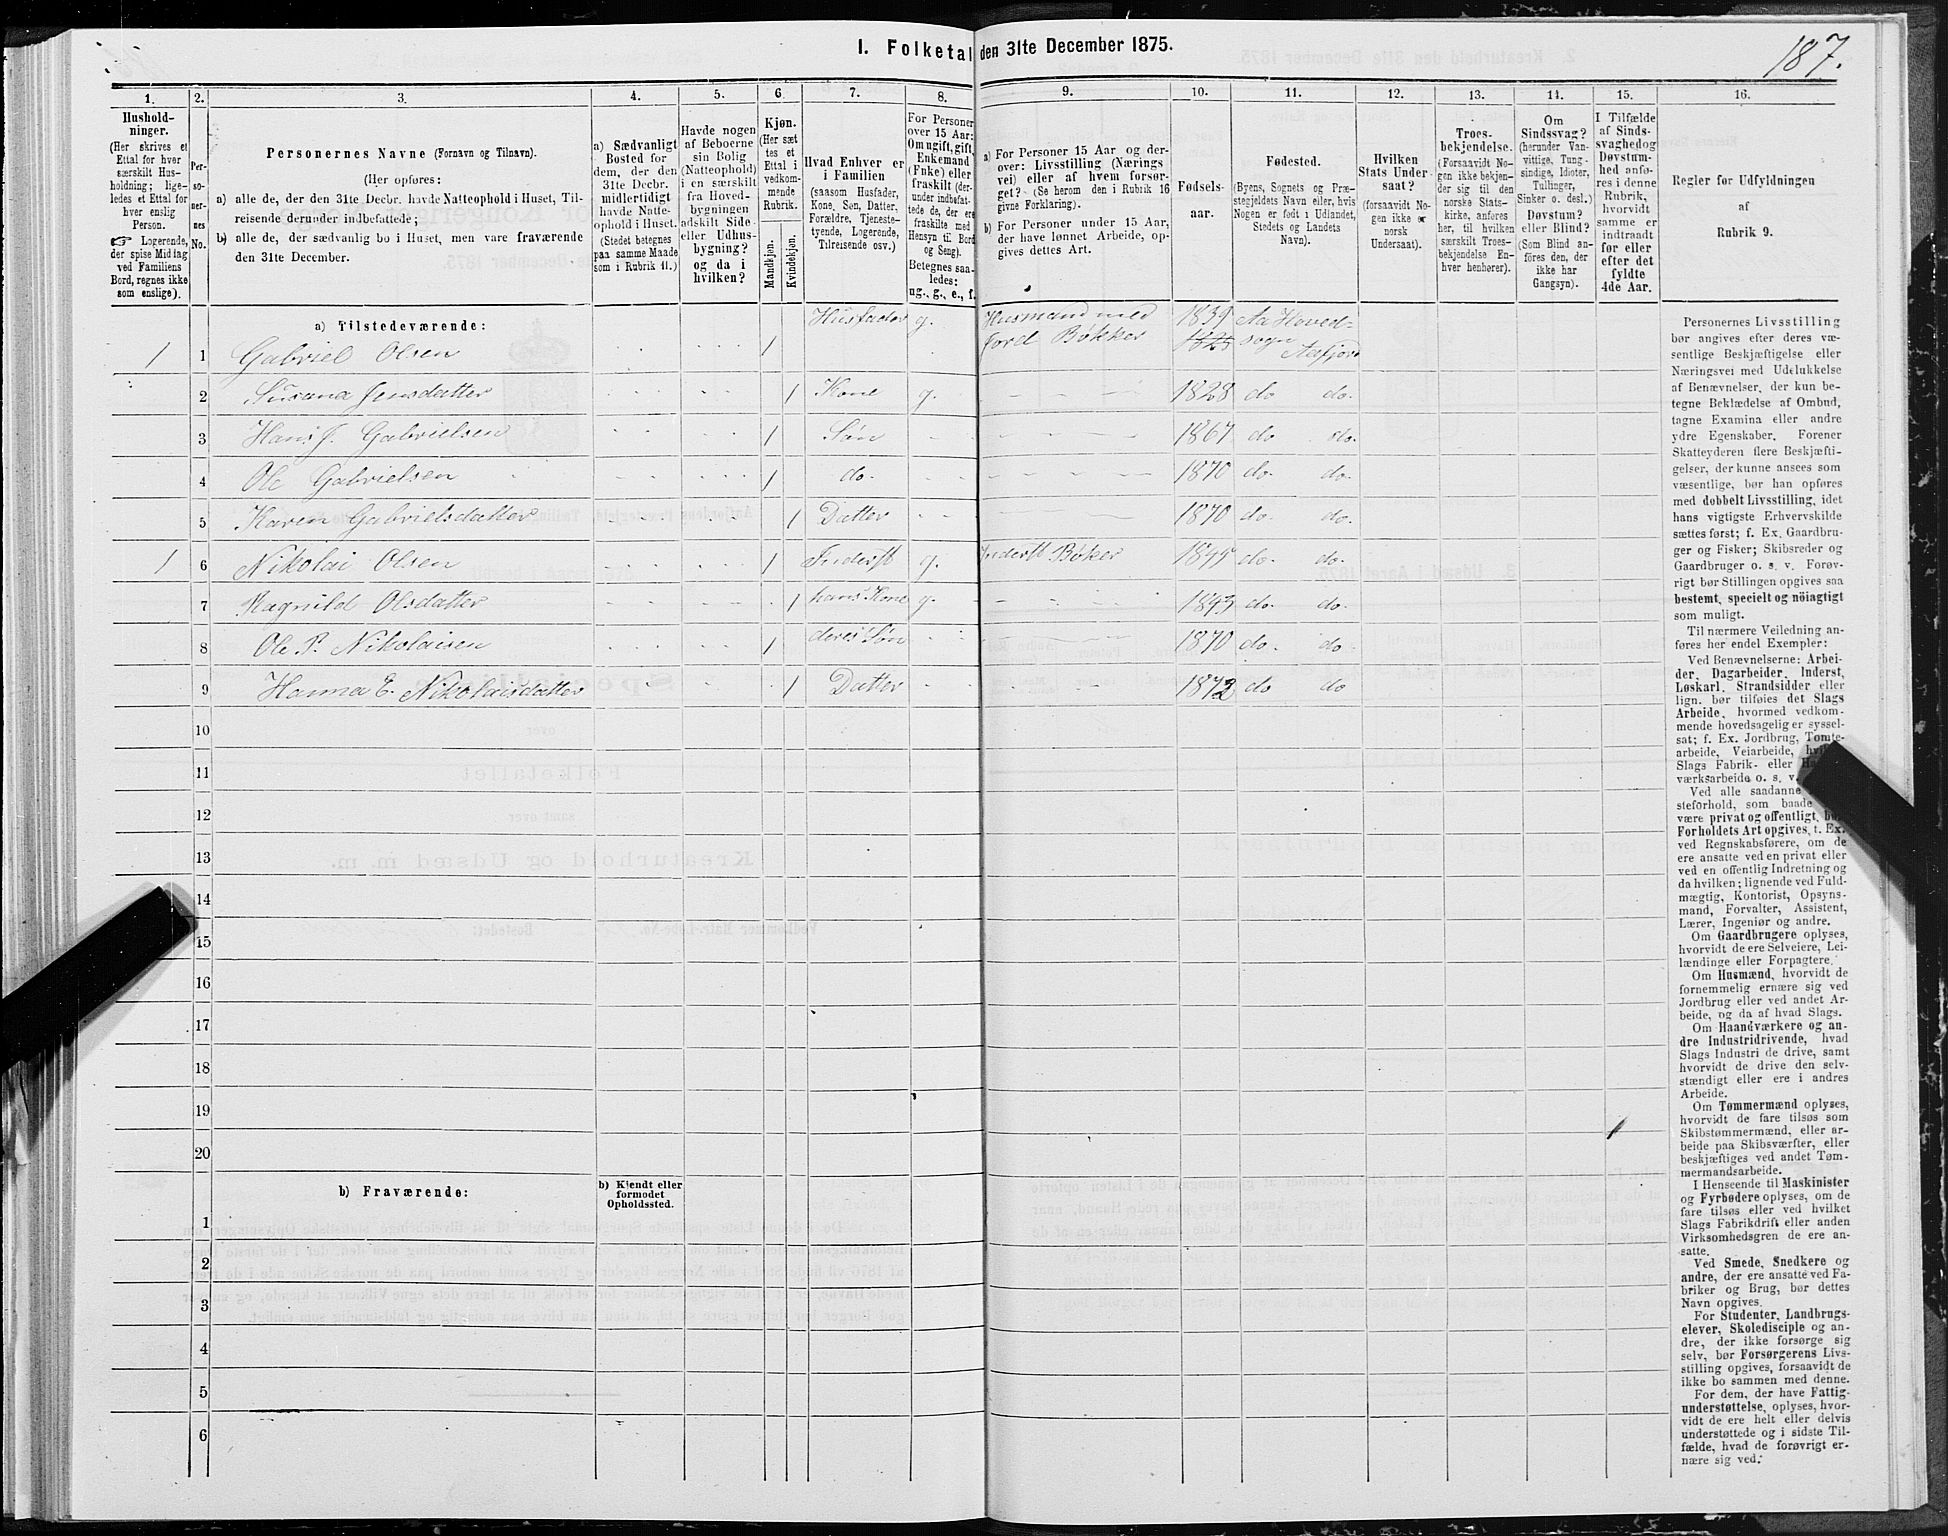 I. Folketal den 31te December 1875.
187.
1.
2.
3.
4.
5.
6.
7.
8.
9.
10.
11.
12.
13.
14.
15.
16.
Hushold-
ninger.
(Her skrives et
Ettal for hver
særskilt Hus-
holdning; lige-
ledes et Ettal for
hver enslig
Person.
☞ Logerende,
der spise Middag
ved Familiens
Bord, regnes ikke
som enslige).
Per-
so-
ner-
nes
No.
Personernes Navne (Fornavn og Tilnavn).
(Her opføres:
a) alle de, der den 31te Decbr. havde Natteophold i Huset, Til-
reisende derunder indbefattede;
b) alle de, der sædvanlig bo i Huset, men vare fraværende
den 31te December.
a) Sædvanligt
Bosted for
dem, der den
31te Decbr.
midlertidigt
havde Natte-
ophold i Huset.
(Stedet betegnes
paa samme Maade
som i Rubrik 11.)
Havde nogen
af Beboerne
sin Bolig
(Natteophold)
i en særskilt
fra Hoved-
bygningen
adskilt Side-
eller Udhus-
bygning?
og da i
hvilken?
Kjøn.
(Her sæt
tes et
Ettal i
vedkom-
mende
Rubrik.
Mandkjøn.
Kvindekjøn.
Hvad Enhver er
i Familien
(saasom Husfader,
Kone, Søn, Datter,
Forældre, Tjeneste-
tyende, Logerende,
Tilreisende osv.)
For Personer
over 15 Aar:
Om ugift, gift,
Enkemand
(Enke) eller
fraskilt (der-
under indbefat-
tede de, der ere
fraskilte med
Hensyn til Bord
og Seng).
Betegnes saa-
ledes:
ug., g., e., f.
a) For Personer 15 Aar og der-
over: Livsstilling (Nærings
vei) eller af hvem forsør-
get? (Se herom den i Rubrik 16
givne Forklaring).
b) For Personer under 15 Aar,
der have lønnet Arbeide, op-
gives dettes Art.
Fødsels-
aar.
Fødested.
(Byens, Sognets og Præ-
stegjeldets Navn eller, hvis
Nogen er født i Udlandet,
Stedets og Landets
Navn).
Hvilken
Stats Under-
saat?
(forsaavidt No-
gen ikke er
norsk
Undersaat).
Troes-
bekjendelse.
(Forsaavidt No-
gen ikke bekjen-
der sig til den
norske Stats-
kirke, anføres
her, til hvilken
særskilt Troes-
bekjendelse En-
hver henhører).
Om
Sindssvag?
(herunder Van-
vittige, Tung-
sindige, Idioter,
Tullinger,
Sinker o. desl.)
Døvstum?
eller Blind?
(Som Blind an-
føres den, der
ikke har
Gangsyn).
I Tilfælde
af Sinds-
svaghed og
Døvstum-
hed anfø-
res i denne
Rubrik,
hvorvidt
samme er
indtraadt
før eller
efter det
fyldte
4de Aar.
Regler for Udfyldningen
af
Rubrik 9.
a) Tilstedeværende:
1 1 Gabriel Olsen 1 Husfader g. Husmand med
jord Bøkker 1839 Aa Hoved-
sogn Aafjord
2 Susana Jensdatter 1 Kone g. 1828 do do.
3 Hans J. Gabrielsen 1 Søn 1867 do do.
4 Ole Gabrielsen 1 do. 1870 do. do.
5 Karen Gabrielsdatter 1 Datter 1870 do. do.
1 6 Nikolai Olsen 1 Inderst g. Inderst Bøker 1849 do. do.
7 Ragnild Olsdatter 1 hans Kone g. 1843 do. do.
8 Ole P. Nikolaisen 1 deres Søn 1870 do. do.
9 Hanna E. Nikolaisdatter 1 Datter 1872 do do
10
11
12
13
14
15
16
17
18
19
20
b) Fraværende:
b) Kjendt eller
formodet
Opholdssted.
1
2
3
4
5
6
Personernes Livsstilling
bør angives efter deres væ-
sentlige Beskjæftigelse eller
Næringsvei med Udelukkelse
af Benævnelser, der kun be-
tegne Beklædelse af Ombud,
tagne Examina eller andre
ydre Egenskaber. Forener
Skatteyderen flere Beskjæfti-
gelser, der kunne ansees som
væsentlige, bør han opføres
med dobbelt Livsstilling, idet
hans vigtigste Erhvervskilde
sættes først; f. Ex. Gaardbru-
ger og Fisker; Skibsreder og
Gaardbruger o. s. v. Forøv-
rigt bør Stillingen opgives saa
bestemt, specielt og nöiagtigt
som muligt.
Til nærmere Veiledning an-
føres her endel Exempler:
Ved Benævnelserne: Arbei-
der, Dagarbeider, Inderst,
Løskarl, Strandsidder eller
lign. bør tilføies det Slags
Arbeide, hvormed vedkom-
mende hovedsagelig er syssel-
sat; f. Ex. Jordbrug, Tomte-
arbeide, Veiarbeide,
Slags Fabrik- eller
værksarbeide o. s. v.
Ved alle saadanne
steforhold, som baade
være privat og offentligt,
Forholdets Art opgives, t. Ex.
ved Regnskabsførere, om de
ere ansatte ved en privat eller
ved en offentlig Indretning og
da hvilken; lignende ved Fuld-
mægtig, Kontorist, Opsyns-
mand, Forvalter, Assistent,
Lærer, Ingeniør og andre.
Om Gaardbrugere oplyses,
hvorvidt de ere Selveiere, Lei-
lændinge eller Forpagtere.
Om Husmænd, hvorvidt de
fornemmelig ernære sig ved
Jordbrug eller ved andet Ar-
beide, og da af hvad Slags.
Om Haandværkere og an-
dre Industridrivende, hvad
Slags Industri de drive, samt
hvorvidt de drive den selv-
stændigt eller ere i andres
Arbeide.
Om Tømmermænd oplyses,
hvorvidt de fare tilsøs som
Skibstømmermænd, eller ar-
beide paa Skibsværfter, eller
beskjæftiges ved andet Tøm-
mermandsarbeide.
I Henseende til Maskinister
og Fyrbødere oplyses, om de
fare tilsøs eller ved hvilket
Slags Fabrikdrift eller anden
Virksomhedsgren de ere an-
satte.
Ved Smede, Snedkere og
andre, der ere ansatte ved Fa-
briker og Brug, bør dettes
Navn opgives.
For Studenter, Landbrugs-
elever, Skoledisciple og an-
dre, der ikke forsørge sig
selv, bør Forsørgerens Livs-
stilling opgives, forsaavidt de
ikke bo sammen med denne.
For dem, der have Fattig-
understøttelse, oplyses, hvor-
vidt de ere helt eller delvis
understøttede og i sidste Til-
fælde, hvad de forøvrigt er-
nære sig ved.